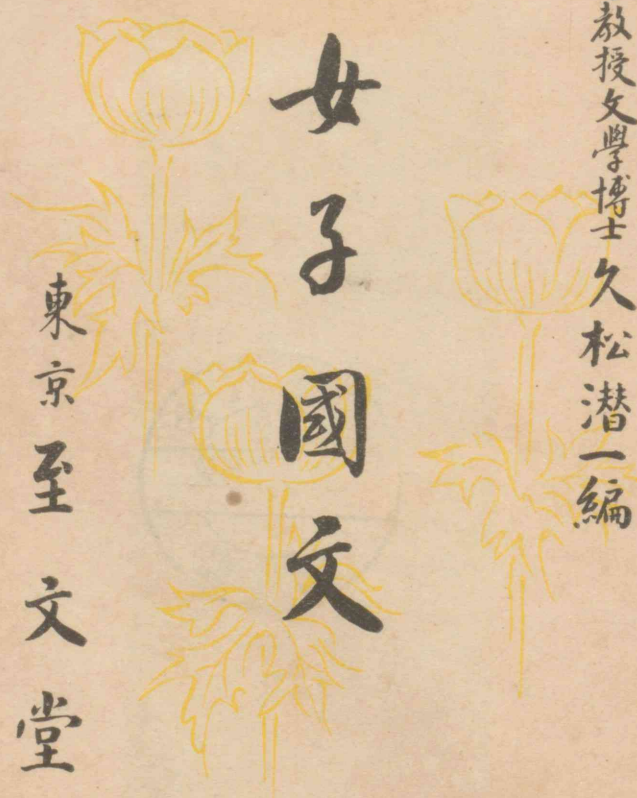 教授文學博士 久松潛一編
女子國文
東京 至文堂